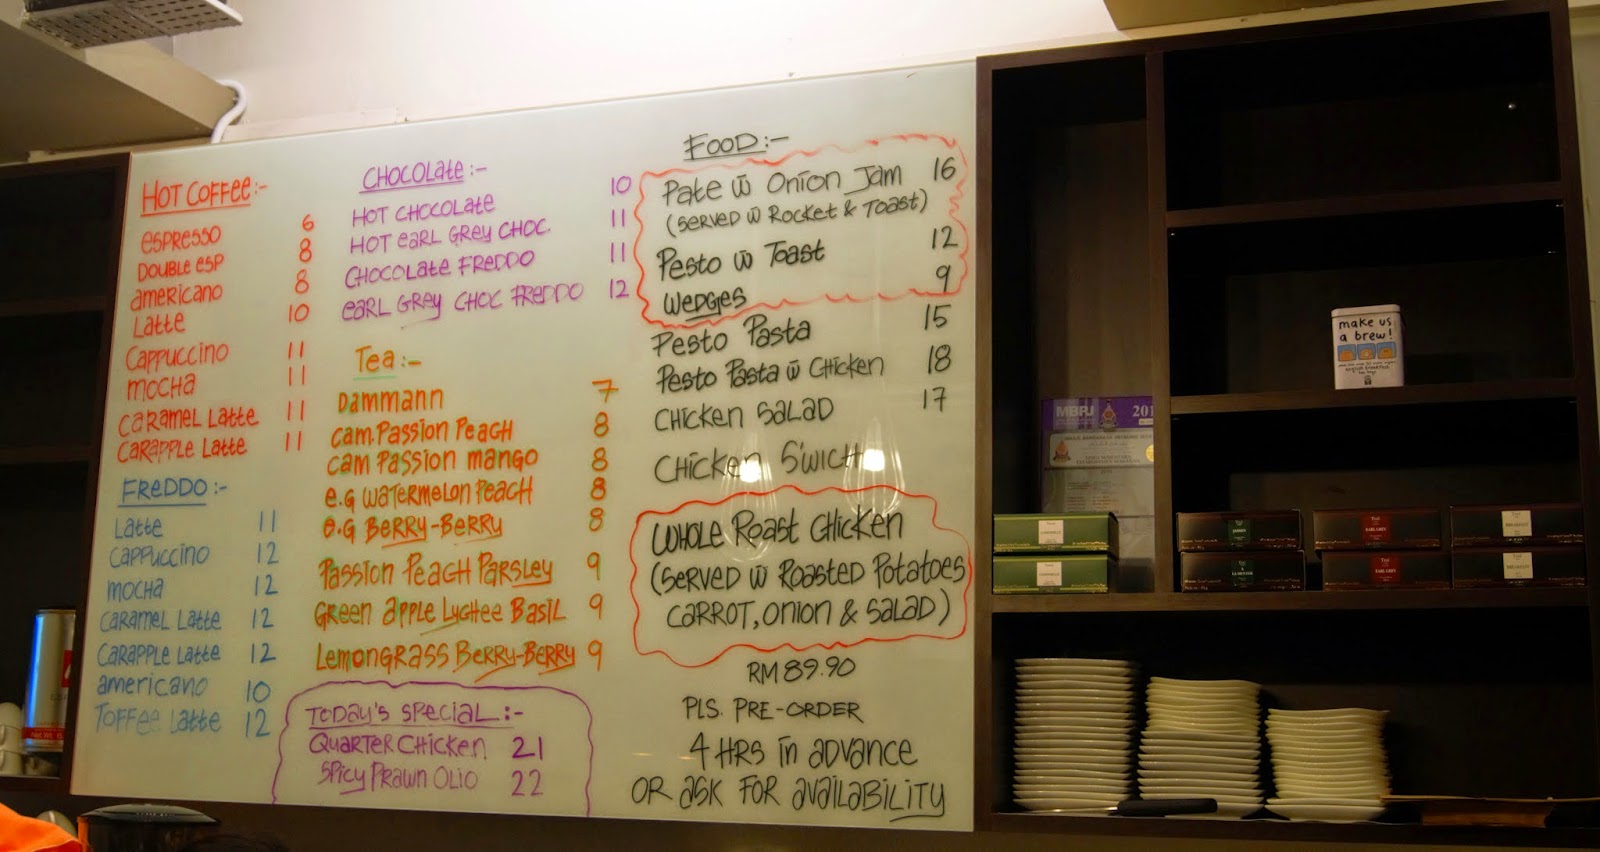 HOT COFFEE:-
ESPRESSO 6
DOUBLE ESP 8
americano 8
Latte 10
Cappuccino 11
mocha 11
CaRameL Latte 11
CaRapple Latte 11
FReDDO:-
Latte 11
Cappuccino 12
mocha 12
CaRameL Latte 12
CaRapple Latte 12
americano 10
Toffee Latte 12
CHOCOLate:-
HOT CHOCOLate 10
HOT eaRL GRey CHOC. 11
CHOCOLate FReDDO 11
eaRL GRey CHOC FReDDO 12
Tea:-
Dammann 7
Cam.Passion Peach 8
Cam Passion mango 8
e.G WateRmeLon Peach 8
e.G BeRRy-BeRRy 8
Passion Peach PaRsLey 9
GReen appLe Lychee BasiL 9
LemonGRass BeRRy-BeRRy 9
ToDay's SpeciaL:-
QuaRteR Chicken 21
Spicy PRawn OLio 22
FOOD:-
Pate w̄ Onion Jam 16
(SeRveD w̄ Rocket & Toast)
Pesto w̄ Toast 12
WeDGes 9
Pesto Pasta 15
Pesto Pasta w̄ Chicken 18
Chicken SaLaD 17
Chicken S'wich
WHOLe Roast Chicken
(SeRveD w̄ RoasteD Potatoes
CaRRot, Onion & SaLaD)
RM 89.90
PLS. PRE-ORDER
4 HRS in aDvance
OR ask FOR avaiLaBiLity
make us
a brew!
MBPJ 201